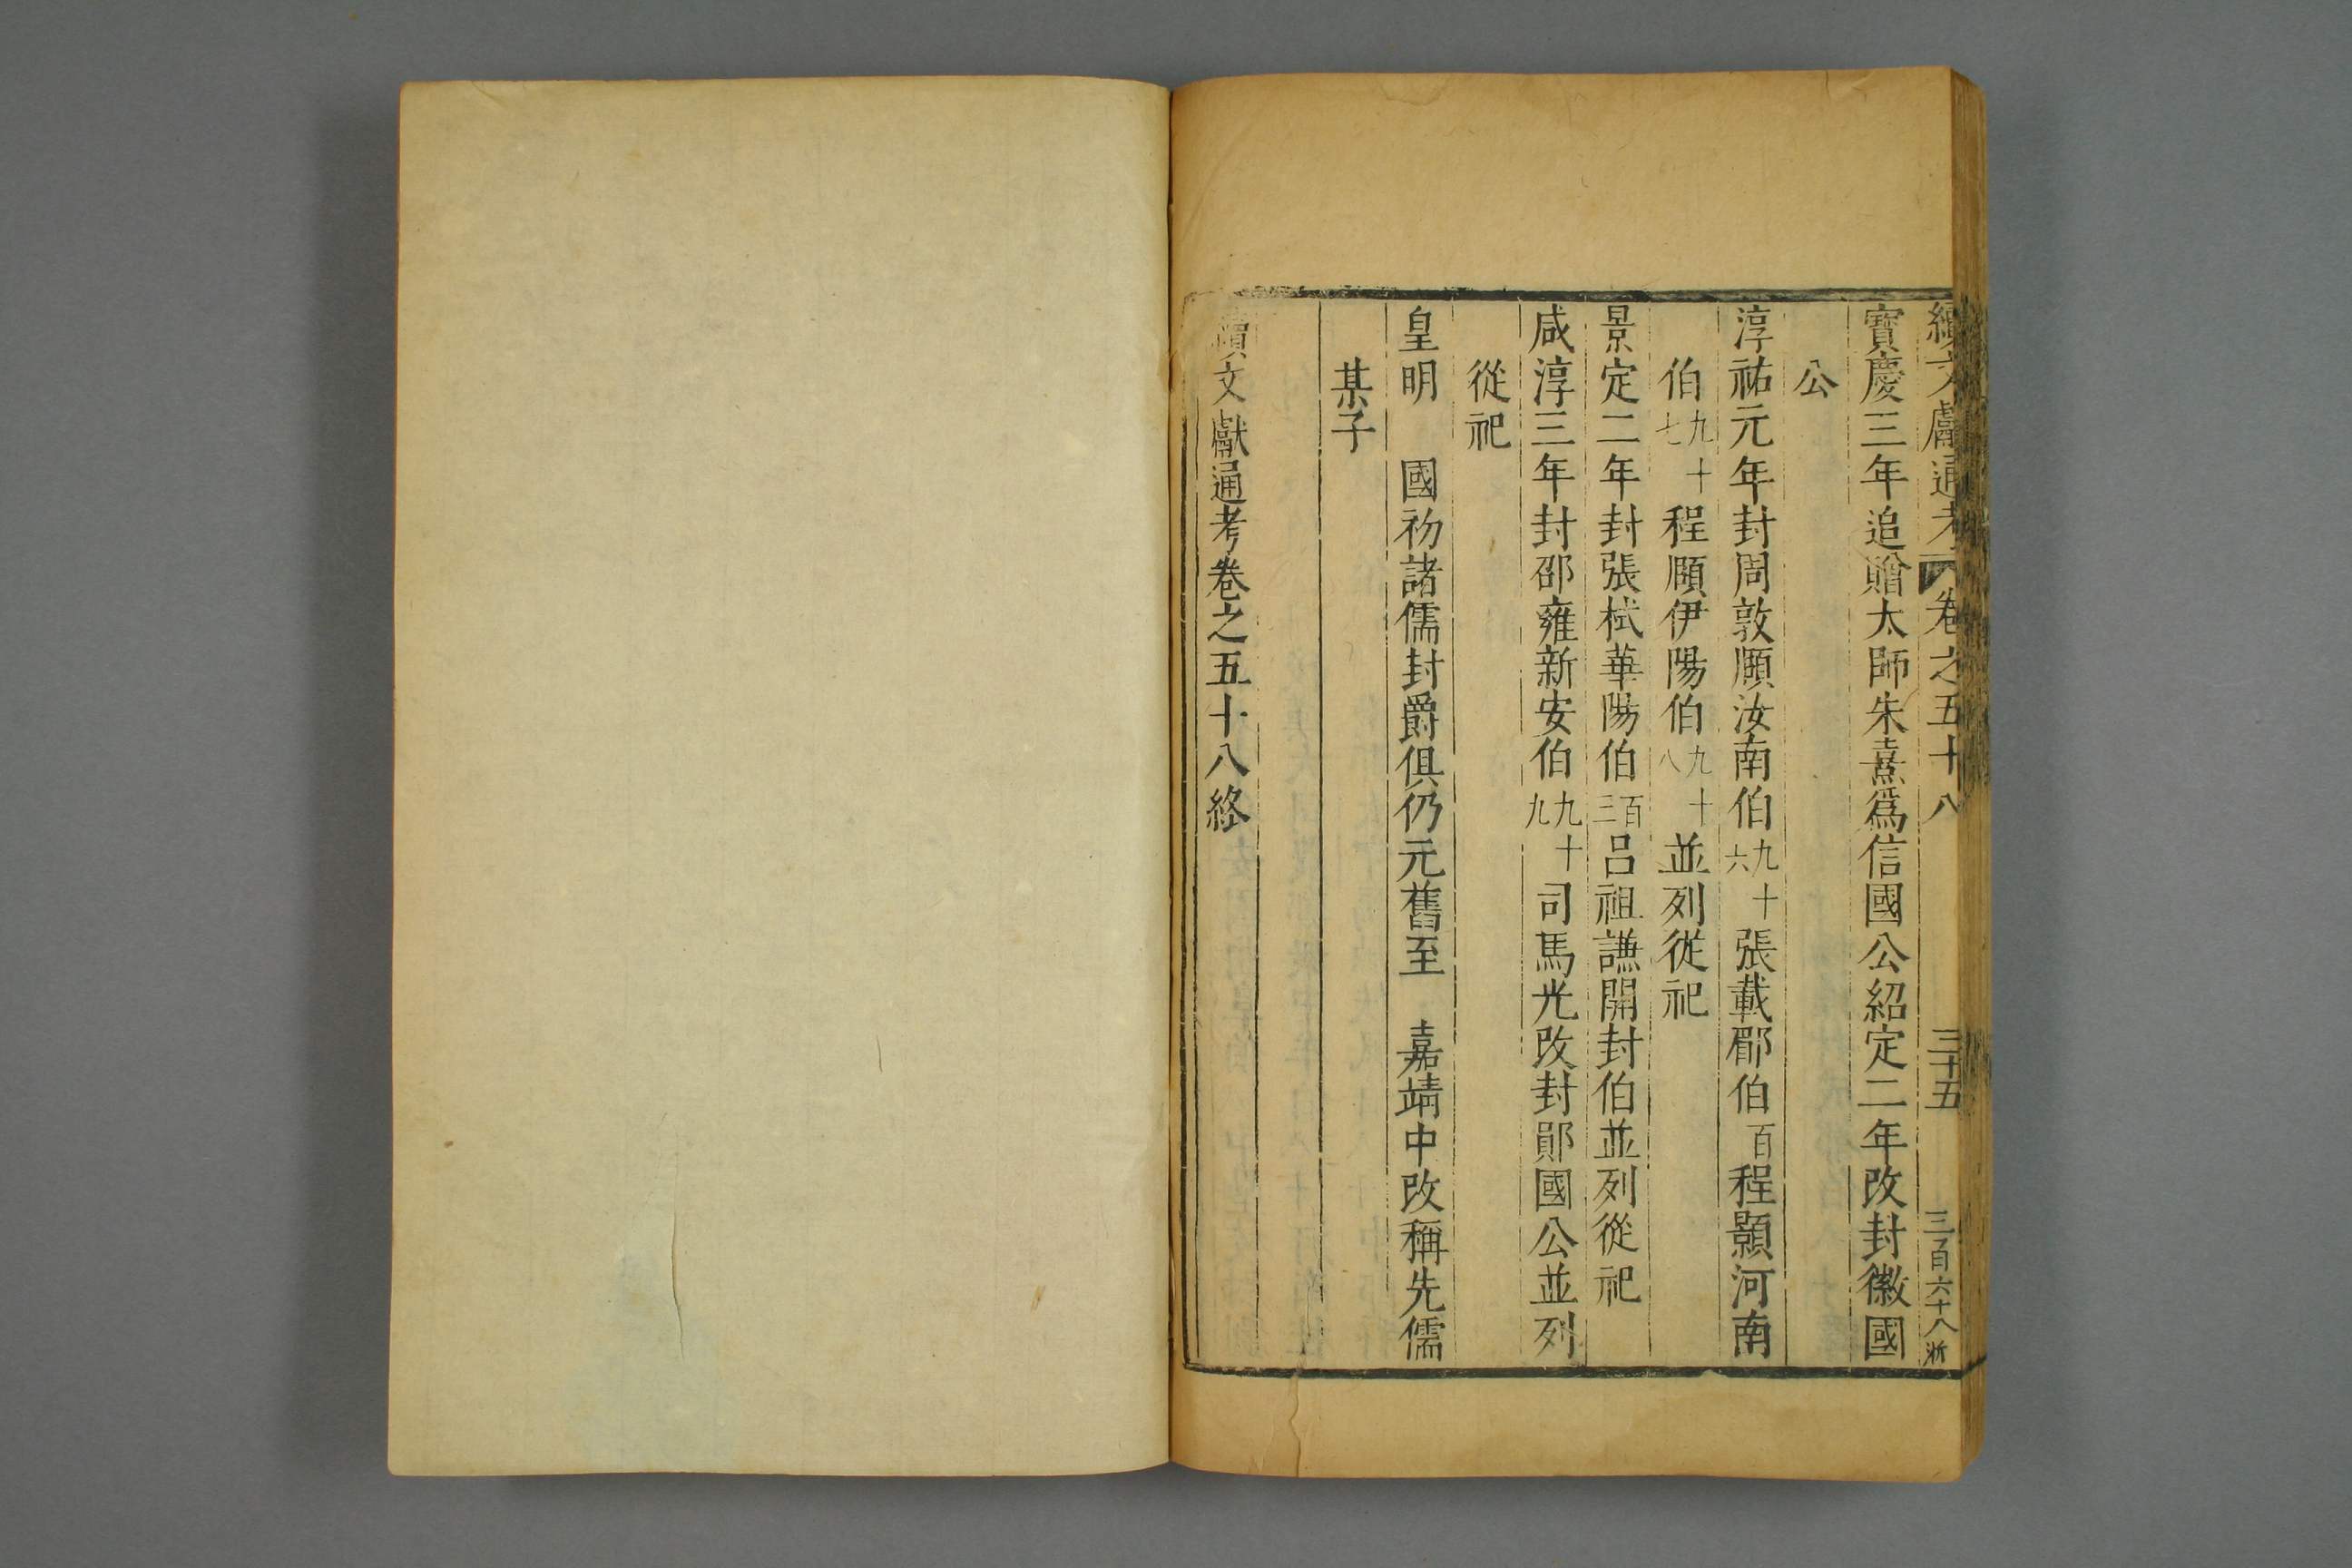 續文獻通考 卷之五十八 三十五 三百六十八 浙
寶慶三年追贈太師朱熹爲信國公紹定二年改封徽國
公
淳祐元年封周敦頤汝南伯九十六張載郿伯百程顥河南
伯九十七程頤伊陽伯九十八並列從祀
景定二年封張栻華陽伯百三呂祖謙開封伯並列從祀
咸淳三年封邵雍新安伯九十九司馬光改封鄖國公並列
從祀
皇明 國初諸儒封爵俱仍元舊至 嘉靖中改稱先儒
某子
續文獻通考卷之五十八終